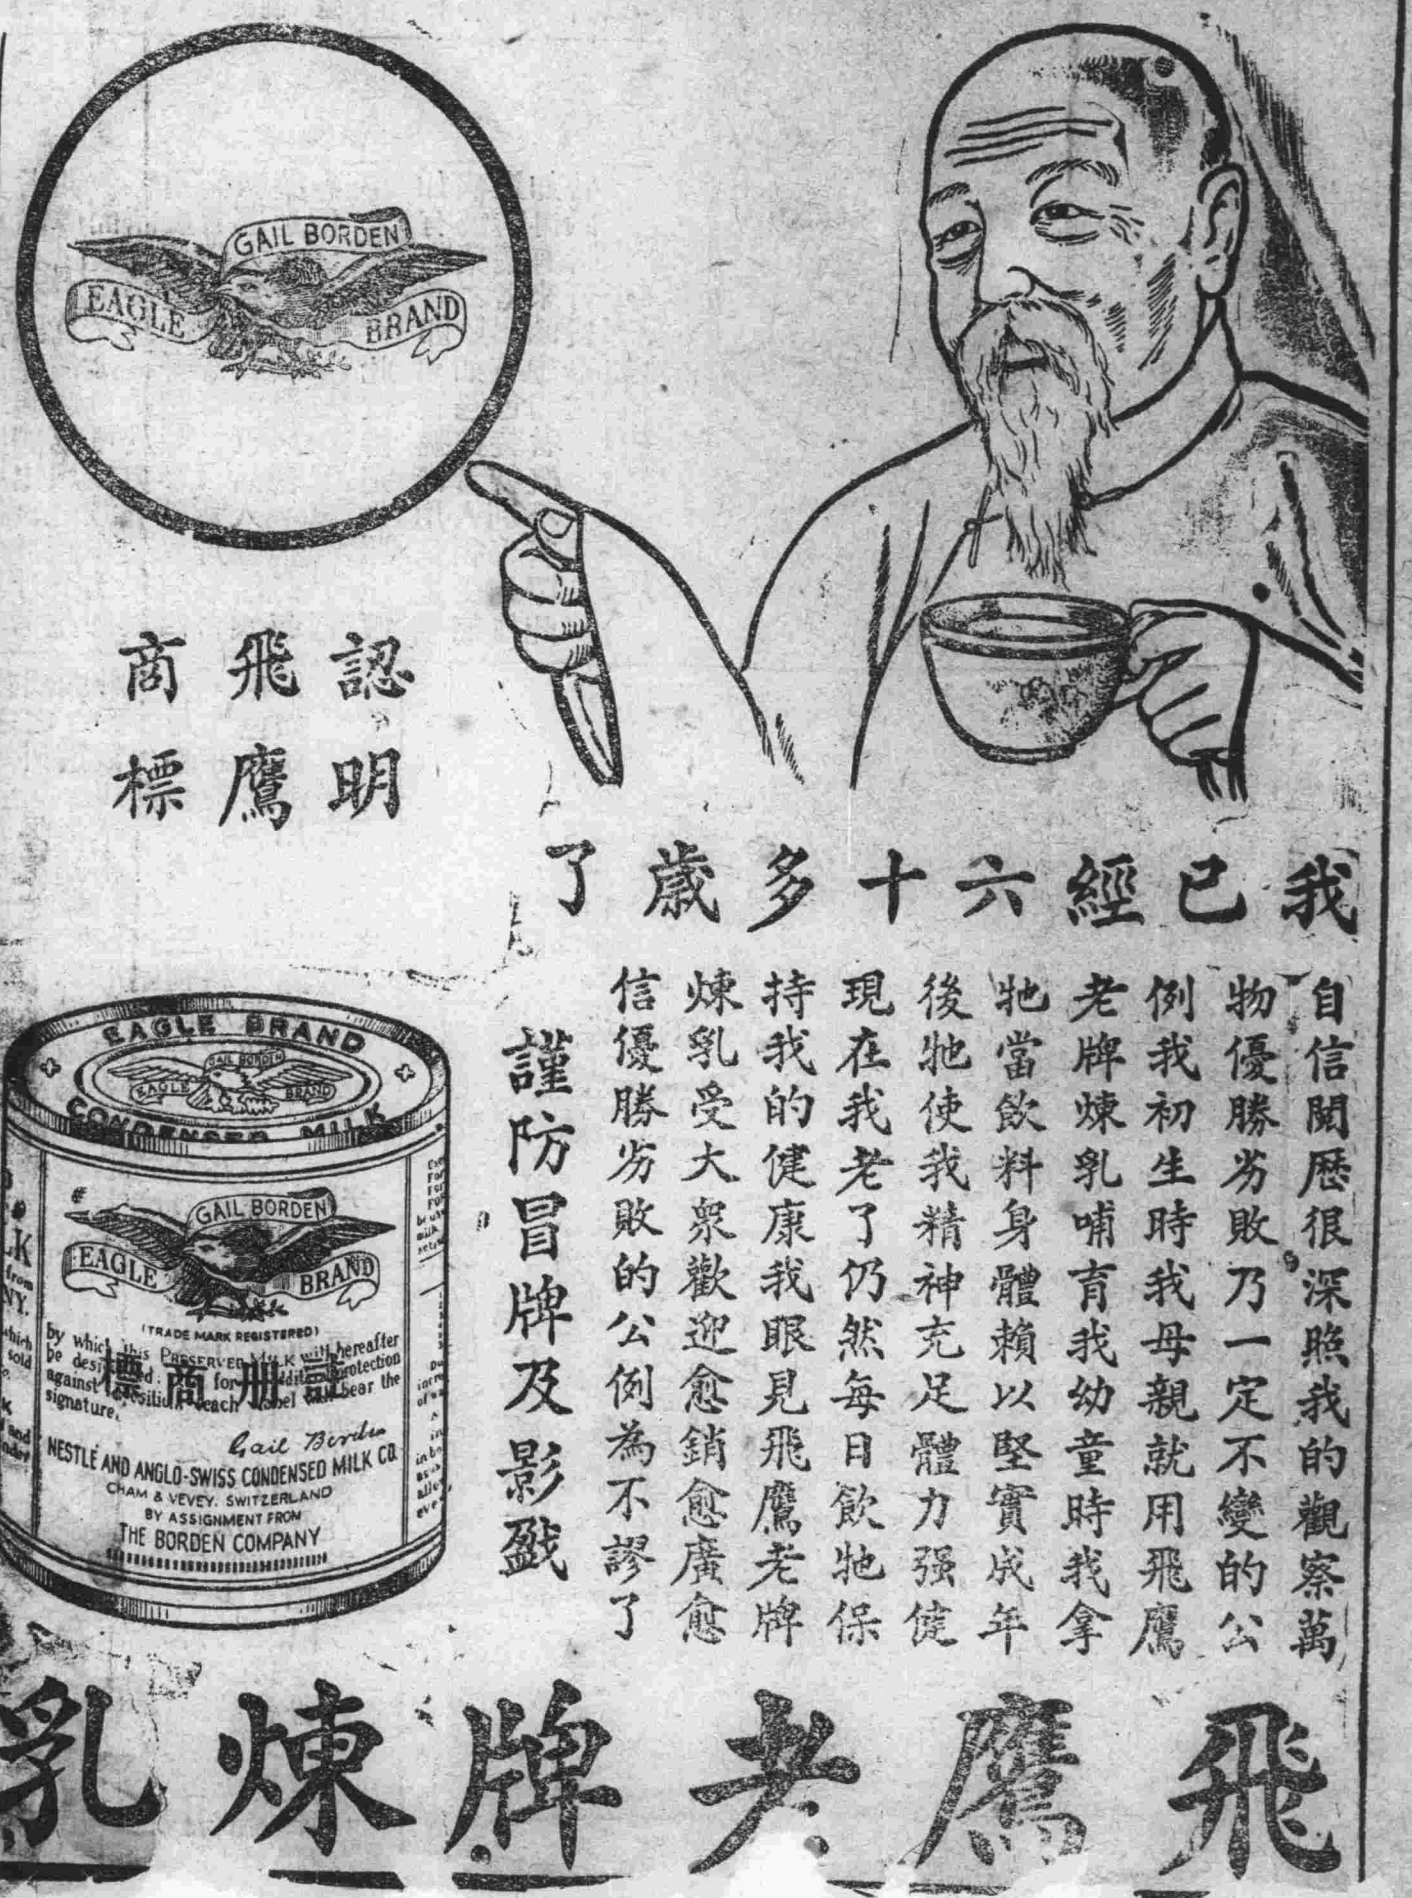 GAIL BORDEN
EAGLE BRAND
認明
飛鷹
商標
我已經六十多歲了
自信閱歷很深照我的觀察萬
物優勝劣敗乃一定不變的公
例我初生時我母親就用飛鷹
老牌煉乳哺育我幼童時我拿
牠當飲料身體賴以堅實成年
後牠使我精神充足體力强健
現在我老了仍然每日飲牠保
持我的健康我眼見飛鷹老牌
煉乳受大衆歡迎愈銷愈廣愈
信優勝劣敗的公例為不謬了
謹防冒牌及影戤
EAGLE BRAND
GAIL BORDEN
EAGLE BRAND
CONDENSED MILK
GAIL BORDEN
EAGLE BRAND
(TRADE MARK REGISTERED)
by which this PRESERVED MILK will hereafter
be for protection
against each label bear the
signature.
註册商標
Gail Borden
NESTLÉ AND ANGLO-SWISS CONDENSED MILK CO.
CHAM & VEVEY, SWITZERLAND
BY ASSIGNMENT FROM
THE BORDEN COMPANY
飛鷹老牌煉乳